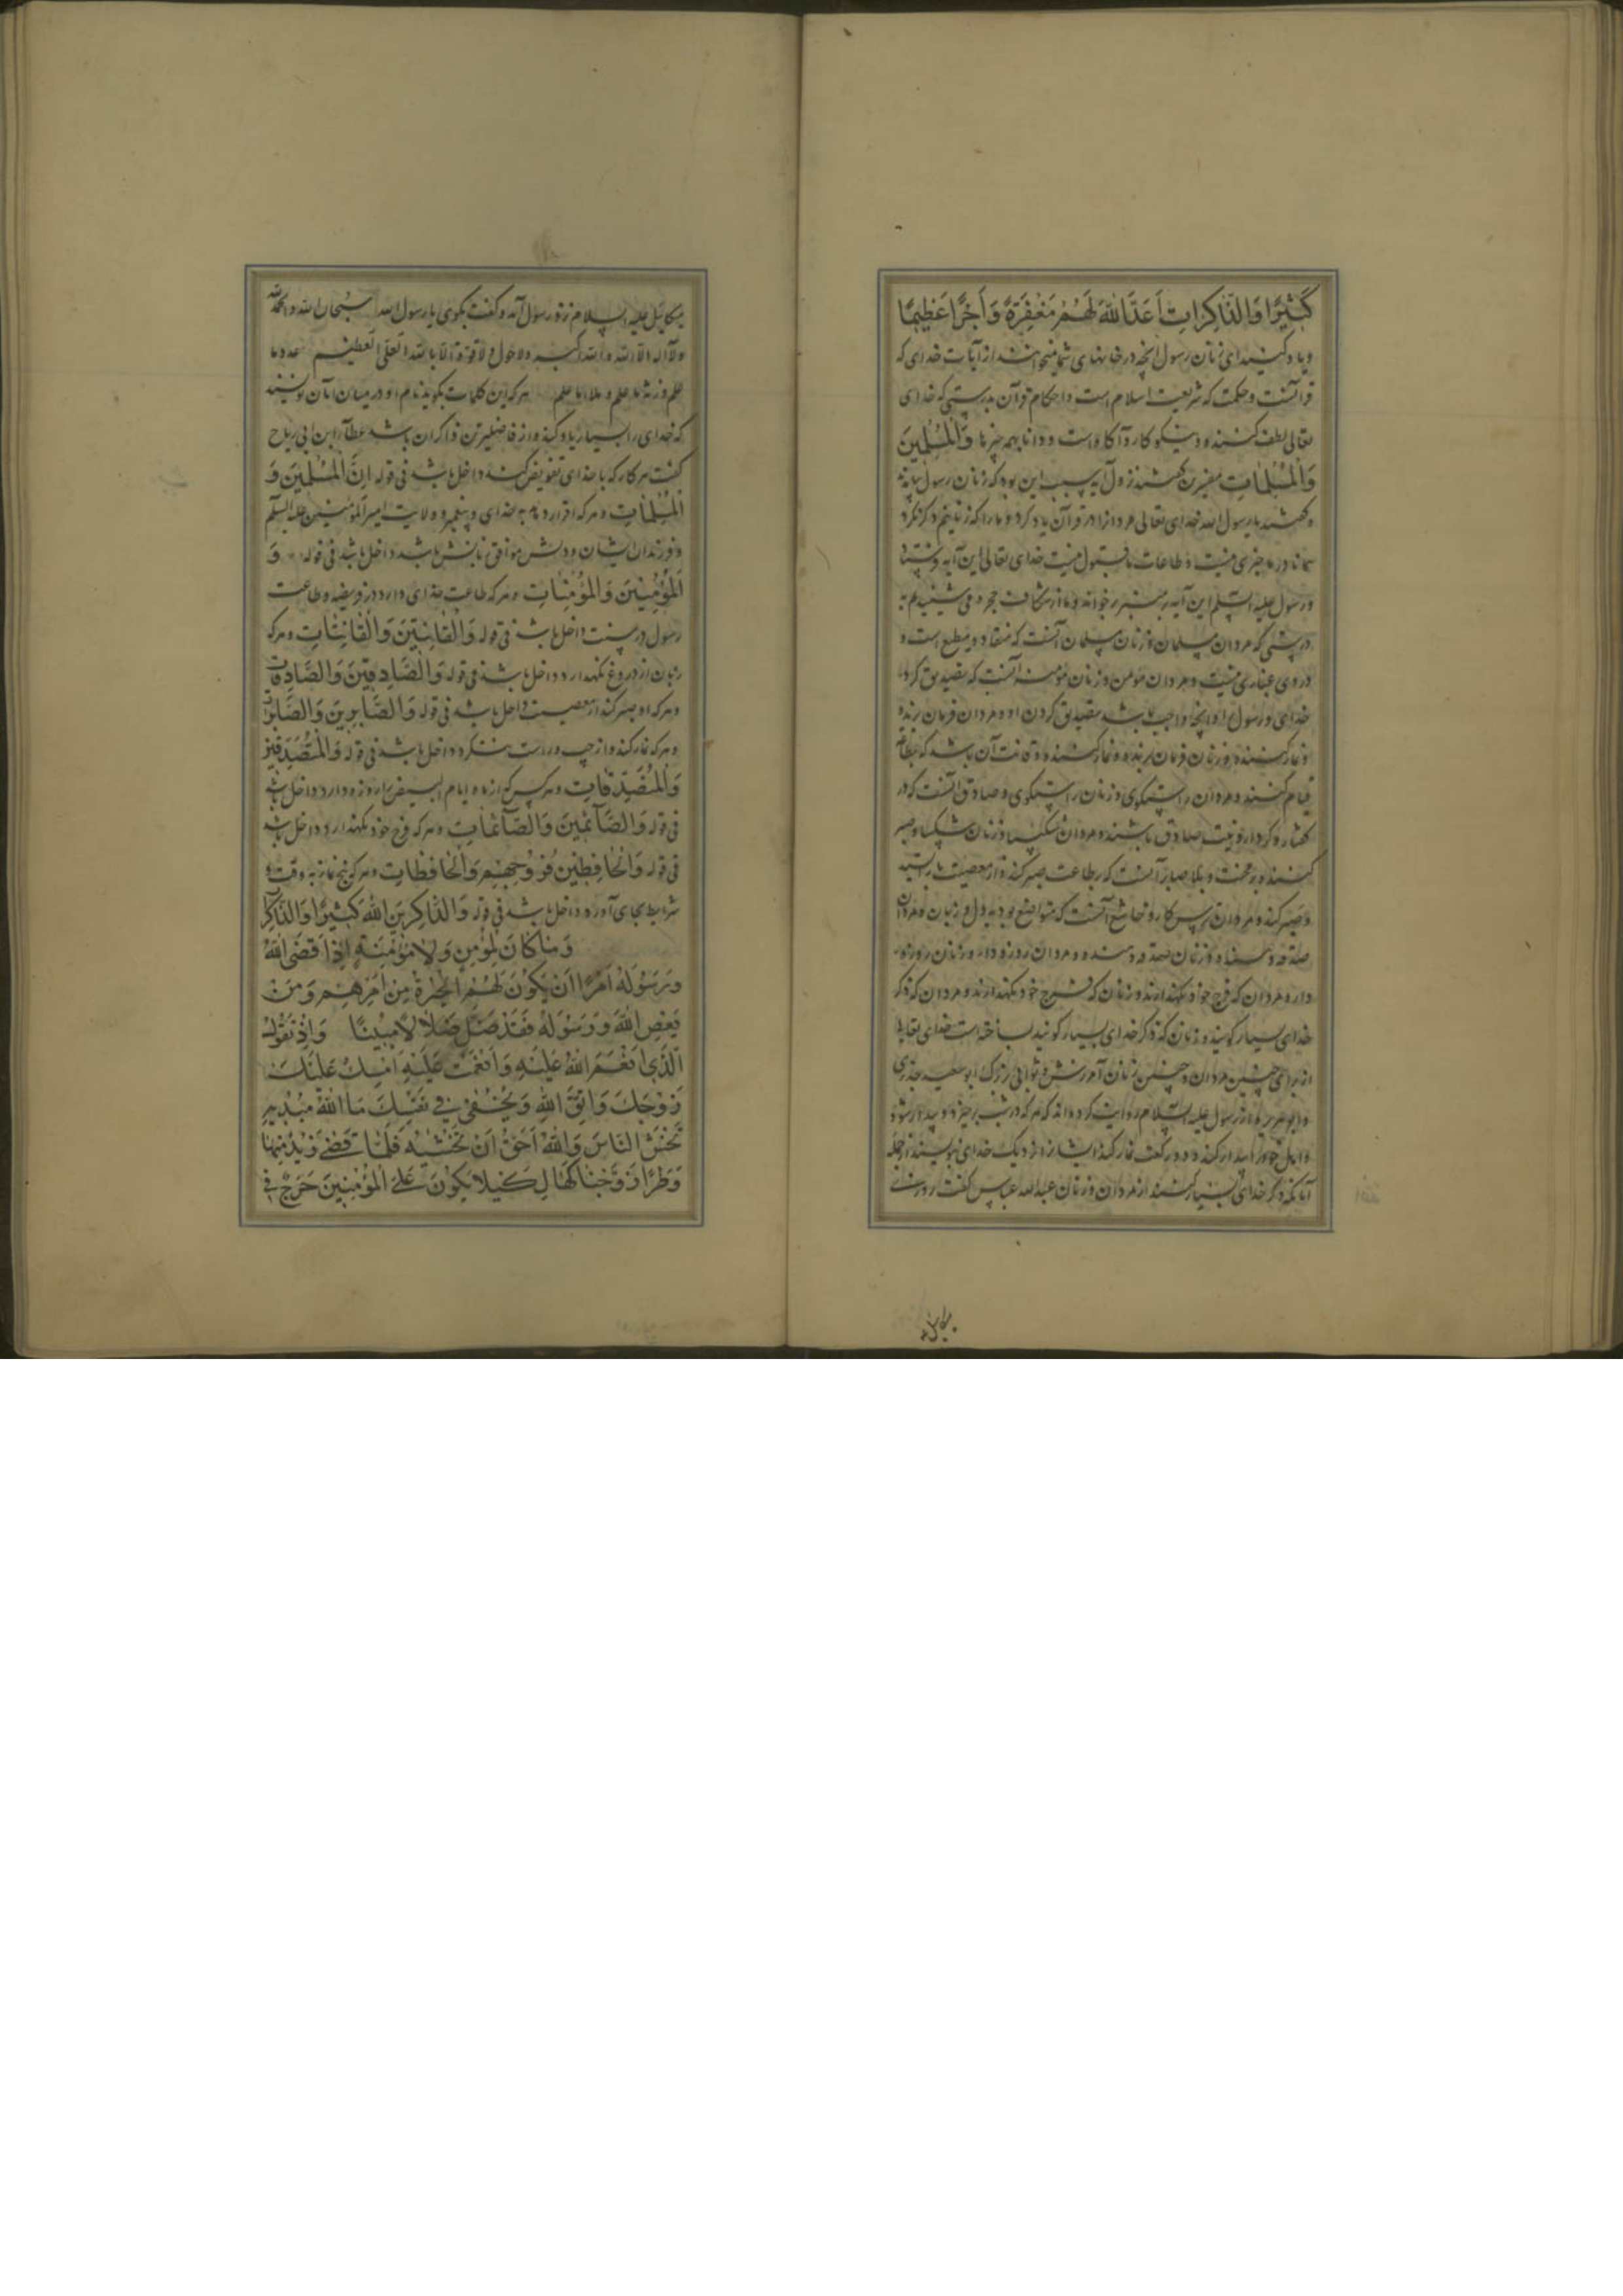 كَثِيرًا وَالذَّاكِرَاتِ أَعَدَّ اللّٰهُ لَهُمْ مَغْفِرَةً وَأَجْرًا عَظِيمًا
و یاد کنید ای زنان رسول آنچه در خانهای شما میخوانند از آیات خدای که
قرآنست و حکمت که شریعت اسلام است و احکام قرآن بدرستی که خدای
تعالی لطف کننده و نیکو کار و آگاه است و دانا بهمه چیزها وَالْمُسْلِمِينَ
وَالْمُسْلِمَاتِ مفسرین گفتند نزول آیه سبب این بود که زنان رسول
و گفتند یا رسول الله خدای تعالی مردانرا در قرآن یاد کرد و ما را که زنانیم ذکر نکرد
همانا در ما خیری نیست و طاعات ما قبول نیست خدای تعالی این آیه
و رسول علیه السلم این آیه بر منبر بر خواند و ما از شکاف حجره می شنیدیم
درستی که مردان مسلمان و زنان مسلمان آنست که منقاد و مطیع است و
در وی غباری نیست و مردان مؤمن و زنان مؤمنه آنست که تصدیق کرد
خدای و رسول او آنچه واجب باشد تصدیق کردن او و مردان فرمان برنده
و نماز کننده و زنان فرمان برنده و نماز کننده و قانت آن باشد که
قیام کنند و مردان راستگوی و زنان راستگوی و صادق آنست که در
گفتار و کردار و نیت صادق باشند و مردان شکیبا و زنان شکیبا و صبر
کننده بر محنت و بلا صابر آنست که بر طاعت صبر کند و از معصیت
و صبر کند و مردان ترس کار و خاشع آنست که متواضع بود به دل و زبان و مردان
صدقه دهنده و زنان صدقه دهنده و مردان روزه دار و زنان روزه
دار و مردان که فرج خود نگهدارند و زنان که فرج خود نگهدارند و مردان که ذکر
خدای بسیار گویند و زنان که ذکر خدای بسیار گویند ساخته است خدای تعالی
از برای چنین مردان و چنین زنان آمرزش و ثوابی بزرگ ابو سعید خدری
و ابو هریره از رسول علیه السلام روایت کرده اند که هر که در شب برخیزد و بیدار شود
و اهل خود را بیدار کند و دو رکعت نماز کند ایشانرا نزدیک خدای بنویسند از جمله
آنانکه ذکر خدای بسیار کنند از مردان و زنان عبد الله عباس گفت روزی
میکائیل علیه السلام نزد رسول آمد و گفت بگوی یا رسول الله سبحان الله والحمد لله
ولا اله الا الله والله اکبر ولا حول ولا قوة الا بالله العلی العظیم عدد ما
علم وزنة ما علم وملأ ما علم هر که این کلمات بگوید نام او در میان آنان نویسند
که خدای را بسیار یاد کند و از فاضلترین ذاکران باشد عطاء ابن ابی رباح
گفت هر کار که با خدای تفویض کند داخل باشد فی قوله إِنَّ الْمُسْلِمِينَ وَ
الْمُسْلِمَاتِ و هر که اقرار دهد به خدای و پیغمبر و ولایت امیر المؤمنین علیه السلم
و فرزندان ایشان و دلش موافق زبانش باشد داخل باشد فی قوله وَ
الْمُؤْمِنِينَ وَالْمُؤْمِنَاتِ و هر که طاعت خدای دارد در فریضه و طاعت
رسول در سنت داخل باشد فی قوله وَالْقَانِتِينَ وَالْقَانِتَاتِ و هر که
زبان از دروغ نگهدارد داخل باشد فی قوله وَالصَّادِقِينَ وَالصَّادِقَاتِ
و هر که او صبر کند از معصیت داخل باشد فی قوله وَالصَّابِرِينَ وَالصَّابِرَاتِ
و هر که نماز کند و از چپ و راست ننگرد داخل باشد فی قوله وَالْمُتَصَدِّقِينَ
وَالْمُتَصَدِّقَاتِ و هر کس که از ماه ایام البیض را روزه دارد داخل باشد
فی قوله وَالصَّائِمِينَ وَالصَّائِمَاتِ و هر که فرج خود نگهدارد داخل باشد
فی قوله وَالْحَافِظِينَ فُرُوجَهُمْ وَالْحَافِظَاتِ و هر که پنج نماز به وقت و
شرایط بجای آورد داخل باشد فی قوله وَالذَّاكِرِينَ اللّٰهَ كَثِيرًا وَالذَّاكِرَ
وَمَا كَانَ لِمُؤْمِنٍ وَلَا مُؤْمِنَةٍ إِذَا قَضَى اللّٰهُ
وَرَسُولُهُ أَمْرًا أَنْ يَكُونَ لَهُمُ الْخِيَرَةُ مِنْ أَمْرِهِمْ وَمَنْ
يَعْصِ اللّٰهَ وَرَسُولَهُ فَقَدْ ضَلَّ ضَلَالًا مُبِينًا وَإِذْ تَقُولُ
الَّذِي أَنْعَمَ اللّٰهُ عَلَيْهِ وَأَنْعَمْتَ عَلَيْهِ أَمْسِكْ عَلَيْكَ
زَوْجَكَ وَاتَّقِ اللّٰهَ وَتُخْفِي فِي نَفْسِكَ مَا اللّٰهُ مُبْدِيهِ
تَخْشَ النَّاسَ وَاللّٰهُ أَحَقُّ أَنْ تَخْشٰيهُ فَلَمَّا قَضٰى زَيْدٌ مِنْهَا
وَطَرًا زَوَّجْنَاكَهَا لِكَيْلَا يَكُونَ عَلَى الْمُؤْمِنِينَ حَرَجٌ فِي